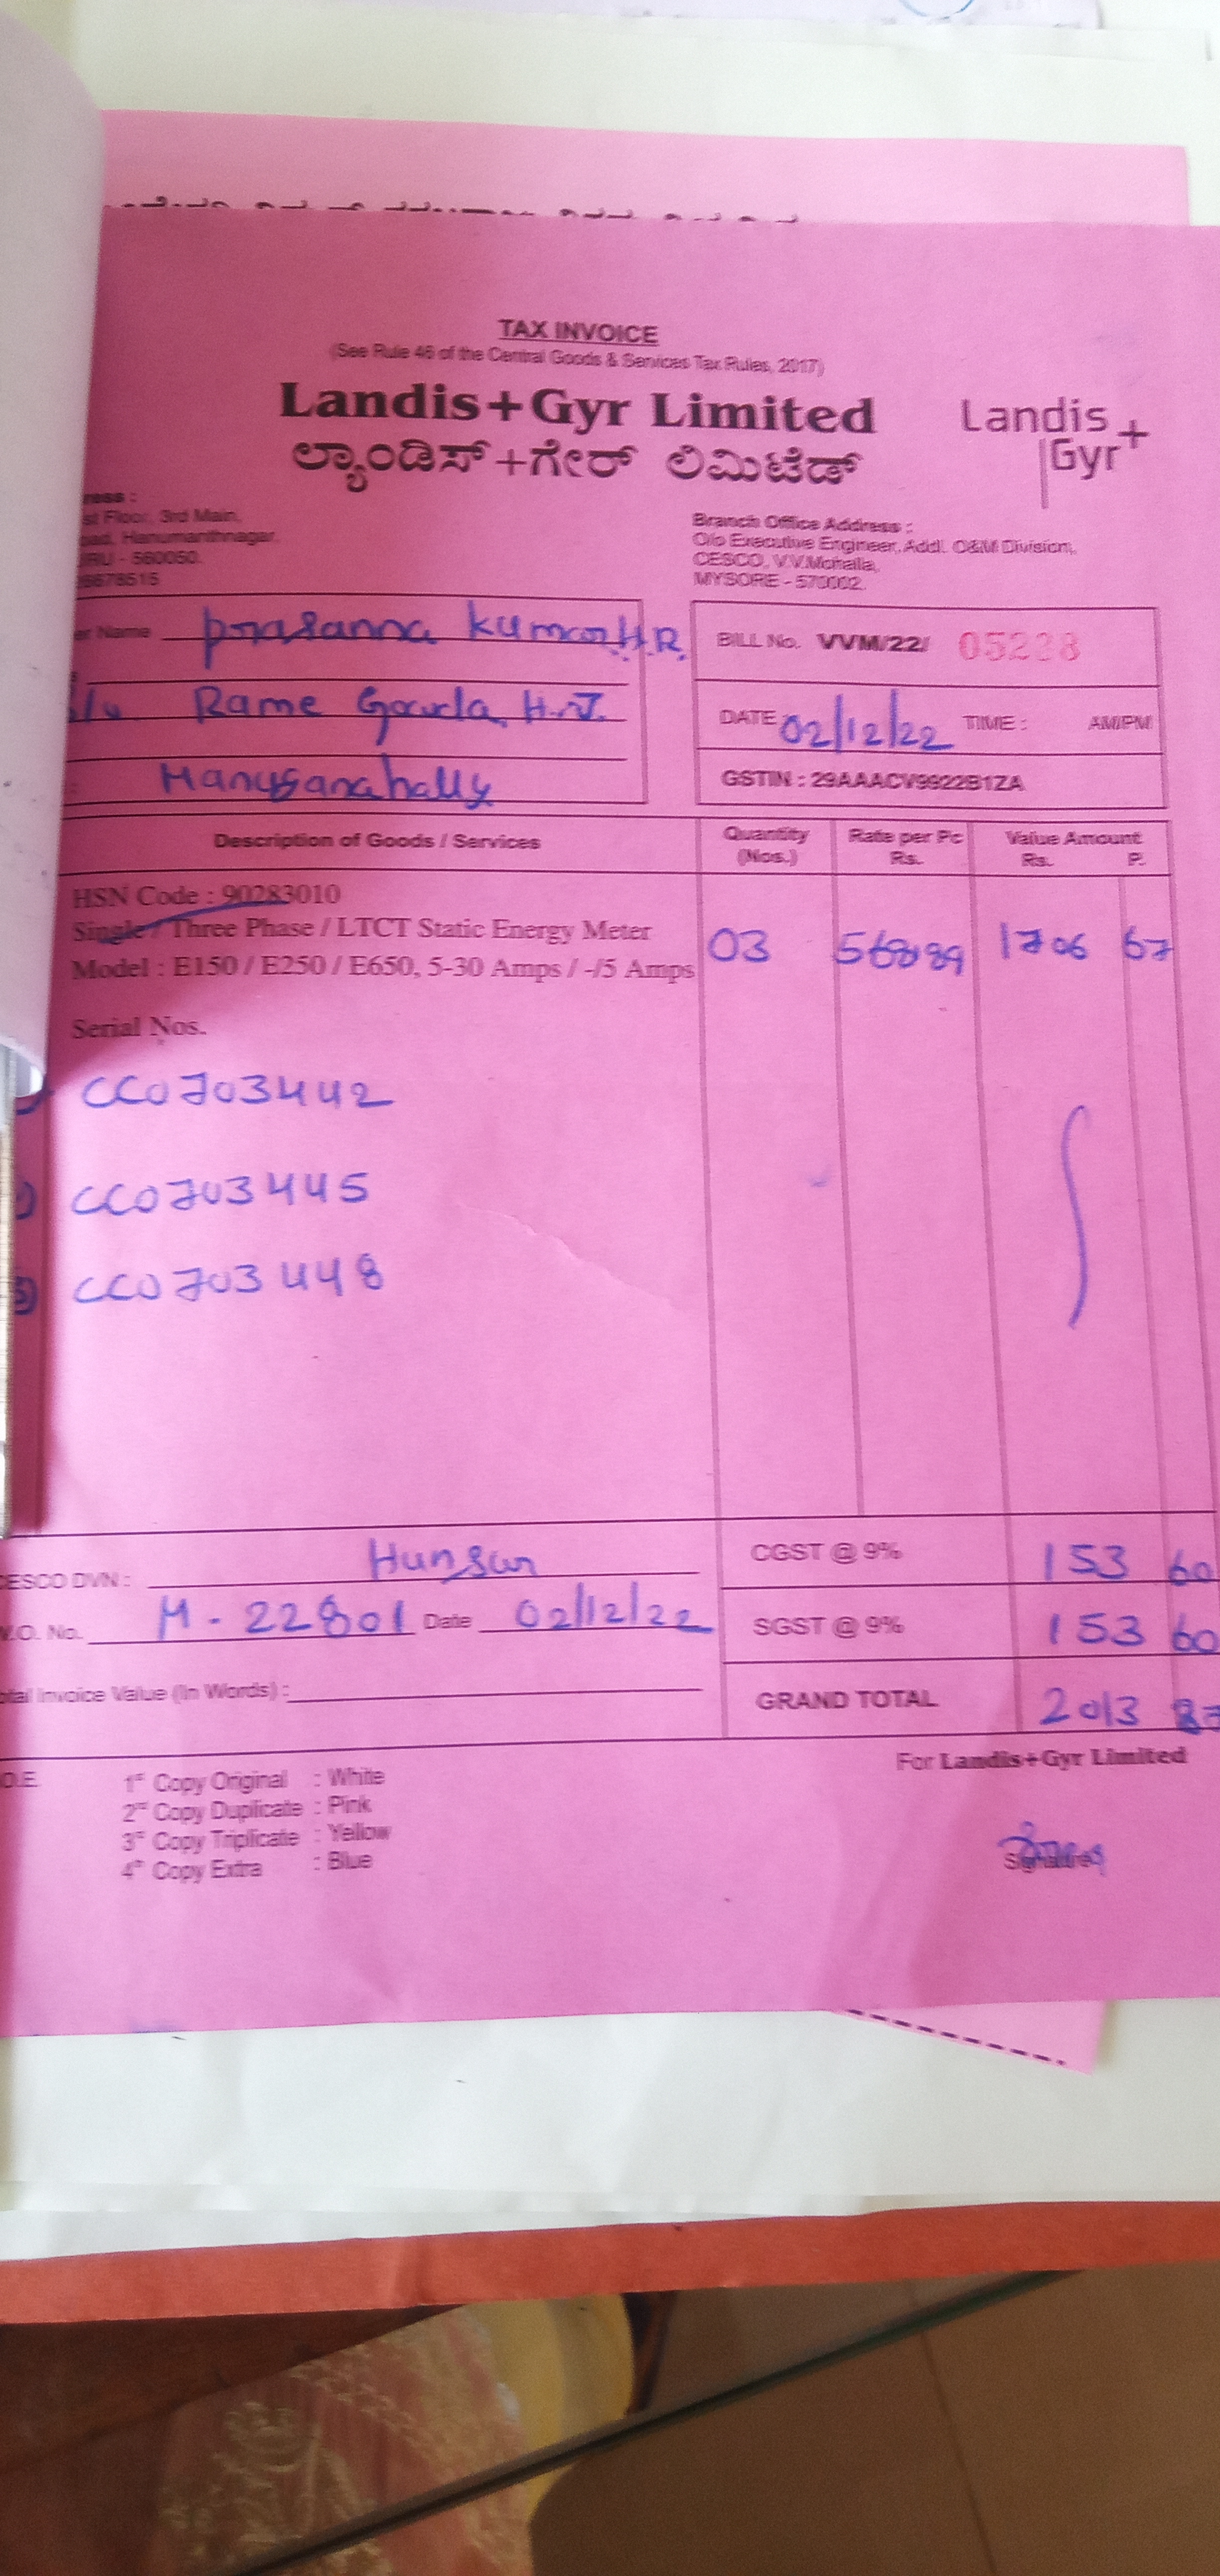 TAX INVOICE
(See Rule 46 of the Central Goods & Services Tax Rules, 2017)
Landis+Gyr Limited
ಲ್ಯಾಂಡಿಸ್+ಗೇರ್ ಲಿಮಿಟೆಡ್
Landis+
Gyr
ress :
st Floor, 3rd Main,
oad, Hanumanthnagar,
RU - 560050.
6678515
Branch Office Address :
O/o Executive Engineer, Addl. O&M Division,
CESCO, V.V.Mohalla,
MYSORE - 570002.
er Name prasanna kumar H.R.
Rame Gowda, H.J.
BILL No. VVM/22/ 05228
DATE 02/12/22 TIME : AM/PM
GSTIN : 29AAACV9922B1ZA
Description of Goods / Services Quantity (Nos.) Rate per Pc Rs. Value Amount Rs. P.
HSN Code : 90283010
Single / Three Phase / LTCT Static Energy Meter
Model : E150 / E250 / E650, 5-30 Amps / -/5 Amps
03 568.89 1706 67
Serial Nos.
CC0703442
CC0703445
3) CC0703448
ESCO DVN : Hunsur
.O. No. M-22801 Date 02/12/22
tal Invoice Value (In Words) :
CGST @ 9% 153 60
SGST @ 9% 153 60
GRAND TOTAL 2013 87
O.E.
1st Copy Original : White
2nd Copy Duplicate : Pink
3rd Copy Triplicate : Yellow
4th Copy Extra : Blue
For Landis+Gyr Limited
Signature